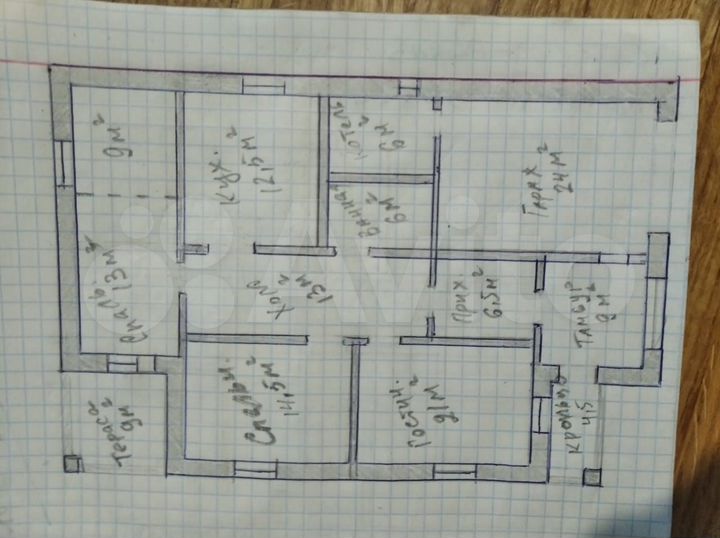 9 м²
Спаль.
13 м²
Кух.
12,5 м²
Котел.
6 м²
Ванна
6 м²
Гараж
24 м²
Холл
13 м²
Прих.
6,5 м²
Тамбур
9 м²
Тераса
9 м²
Спальн.
14,5 м²
Гостин.
21 м²
Крыльцо
4,5
Avito